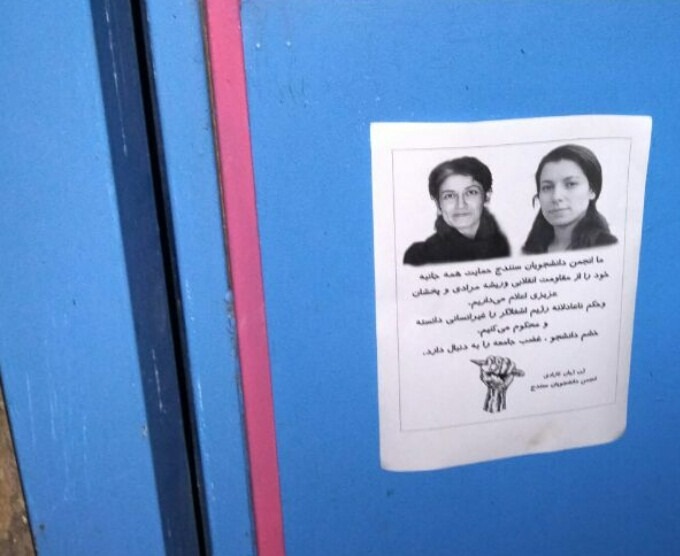 ما انجمن دانشجویان سنندج حمایت همه جانبه
خود را از مقاومت انقلابی وریشه مرادی و پخشان
عزیزی اعلام می‌داریم.
وحکم ناعادلانه رژیم اشغالگر را غیرانسانی دانسته
و محکوم می‌کنیم.
خشم دانشجو ، غضب جامعه را به دنبال دارد.
ژن ژیان ئازادی
انجمن دانشجویان سنندج